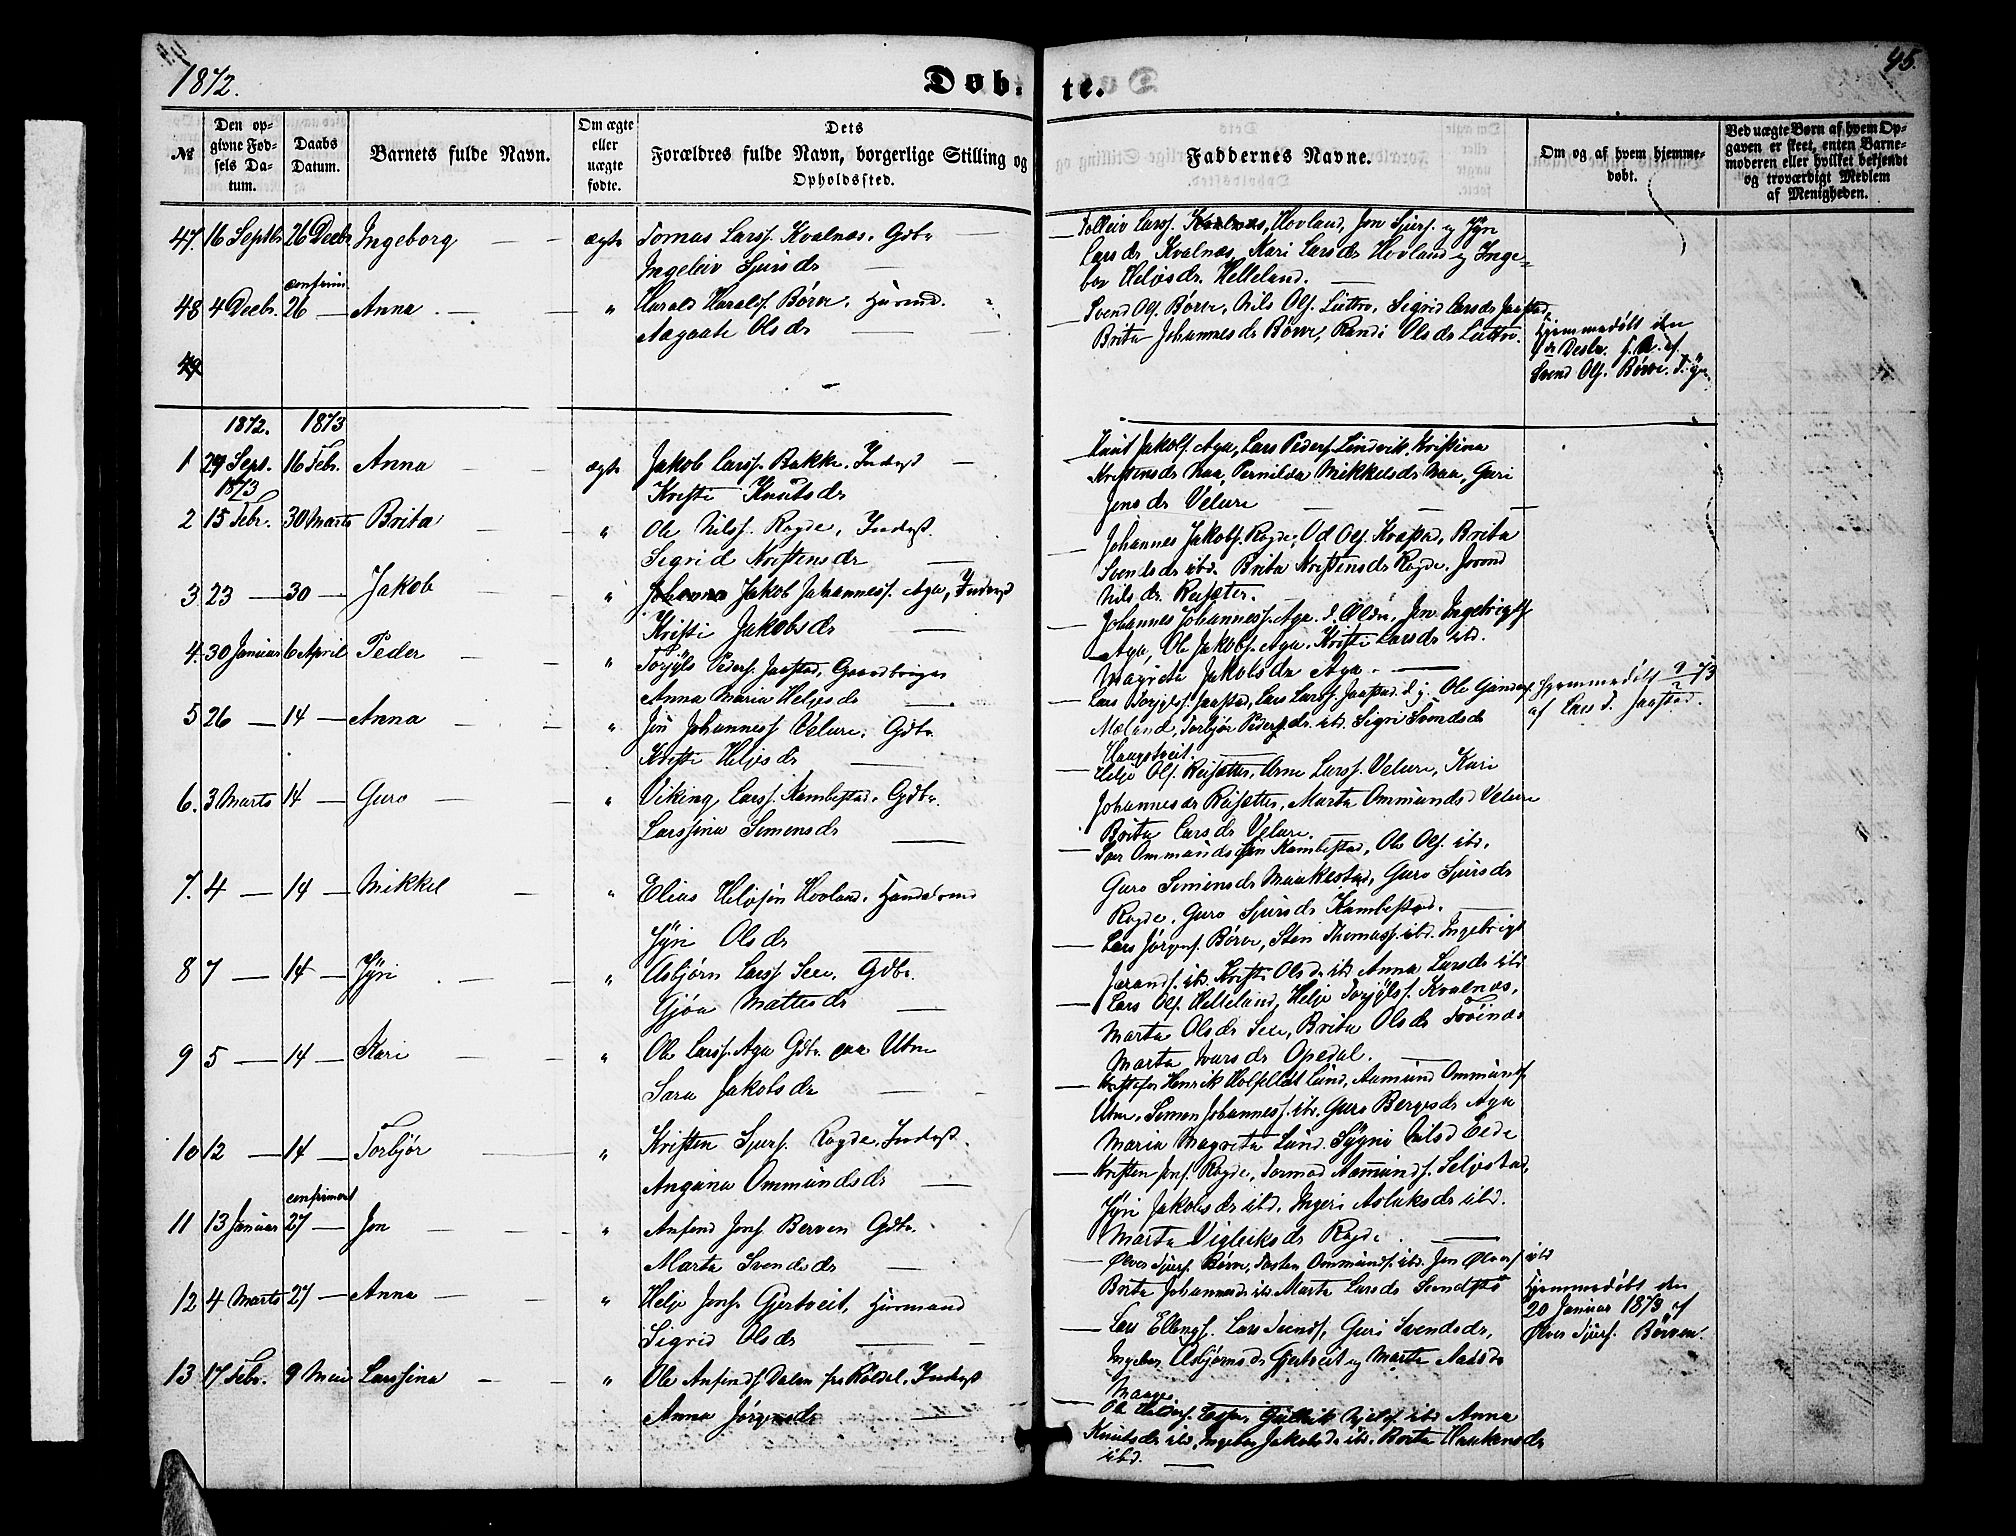 1872.
Døb-
te.
45.
№
Den op-
givne Fød-
sels Da-
tum.
Daabs
Datum.
Barnets fulde Navn.
Om ægte
eller
uægte
fødte.
Dets
Forældres fulde Navn, borgerlige Stilling og
Opholdssted.
Faddernes Navne.
Om og af hvem hjemme-
døbt.
Ved uægte Børn af hvem Op-
gaven er skeet, enten Barne-
moderen eller hvilket bekjendt
og troværdigt Medlem
af Menigheden.
47. 16 Septbr 26 Decbr Ingeborg ægte Tomas Larss. Kvalnæs. Gdbr
Ingeleiv Sjurs dr
Tolleiv Larss. Hovland, Jon Sjurs. og Jÿri
Lars dr Kvalnæs, Kari Lars dr Hovland og Inge-
bor Heljes dr. Helleland.
confirm.
48 4 Decbr. 26 — Anna " Harald Haralds. Børve. Huusmd.
Aagaate Ols dr
Svend Ols. Børve, Nils Ols. Lutro, Sigrid Lars dr Jaastad,
Brita Johannes dr Børve, Randi Ols dr Lutro.
Hjemmedøbt den
Svend Ols. Børve.
49
1872. 1873
1 29 Sept. 16 Febr. Anna ægte Jakob Larss. Bakke. Inderst
Kristi Knuts dr
Knut Jakobs. Aga, Lars Peders. Lindvik, Kristina
Kristens dr Naa, Pernilda Mikkels dr Naa, Guri
Jens dr Velure
1873
2 15 Febr. 30 Marts Brita " Ole Nilss. Rogde, Inderst.
Sigrid Kristens dr
Johannes Jakobs. Rogde, Od Ols. Krastad, Brita
Svends dr ibd. Brita Kristens dr Rogde.
Nils dr. Reisæter.
3 23 — 30 — Jakob " Jakob Johanness. Aga, Inderst
Kristi Jakobs dr
Johannes Johanness. Aga. d. Ældre, Jon Ingebrigts.
Aga, Ole Jakobs. Aga. Kristi Lars dr ibd.
Magreta Jakobs dr Aga.
4. 30 Januar 6 April Peder " Torjyls Peders. Jaastad, Gaardbruger
Anna Maria Heljes dr
Lars Torjyls. Jaastad, Lars Larss. Jaastad. d. y. Ole
Mæland, Torbjør Peders dr. ibd. Sigri Svends dr
Haugstveit.
Hjemmedøbt 9/2 73
af Lars T. Jaastad.
5 26 — 14 — Anna " Jon Johanness Velure. Gdbr.
Kristi Heljes dr
Helje Ols. Reisæter, Arne Larss. Velure, Kari
Johannes dr Reisæter, Marta Ommunds d Velure
Brita Lars dr Velure.
6. 3 Marts 14 — Guro " Viking Larss. Kambestad. Gdbr.
Larssina Simens dr
Ommundsen Kambestad, Ole Ols. ibd.
Guro Simens dr Maakestad, Guro Sjurs dr
Rogde, Guro Sjurs dr Kambestad.
7. 4 — 14 — Mikkel " Elias Heljesøn Hovland. Handelsmd
Jÿri Ols dr
Lars Jørgens. Børve, Sten Thomass. ibd. Ingebrigt
Jørands. ibd. Kristi Ols dr ibd Anna Lars dr ibd
8 7 — 14 — Jÿri " Asbjørn Larss. See. Gdbr.
Gjøa Mattes dr
Lars Ols. Helleland, Helje Torjyls s. Kvalnæs,
Marta Ols dr See, Brita Ols dr Trøinæs
Marta Ivars dr Opedal.
9 5 — 14 — Kari " Ole Larss. Aga Gdbr. paa Utne
Sara Jakobs dr
Kristofer Henrik Lund, Aamund Ommunds.
Utne, Simon Johanness. ibd. Guro Berges dr Aga
Maria Magreta Lund. Sÿgni Nils d Eide
10 12 — 14 — Torbjør " Kristen Sjurs. Rogde. Inderst.
Angina Ommunds dr
Kristen Jons. Rogde, Tormod Aamunds. Seljestad,
Jÿri Jakobs dr ibd. Ingeri Aslaks dr ibd.
Marta Vigleiks dr Rogde.
confirmert
11 13 Januar 27 — Jon " Anfind Jons. Berven Gdbr.
Marta Svends dr
Ølver Sjurs. Børve, Tosten Ommunds. ibd. Jon Ølvers. ibd
Brita Johannes dr ibd. Marta Lars dr Sundstø
Hjemmedøbt den
20 Januar 1873 af
Ølver Sjurs. Børven.
12 4 Marts 27 — Anna " Helje Jons. Gjertveit. Huusmand
Sigrid Ols dr
Lars Ellings. Lars Svends, Guri Svends dr,
Ingebor Asbjørns dr Gjertveit og Marta Aads dr
Maage
13 17 Febr. 9 Mai Larssina " Ole Anfinds. Dalen fra Røldal. Inderst
Anna Jørgens dr
Espen ibd Anna
Knuts dr ibd, Ingebor Jakobs dr ibd. Brita Haakens dr
ibd.